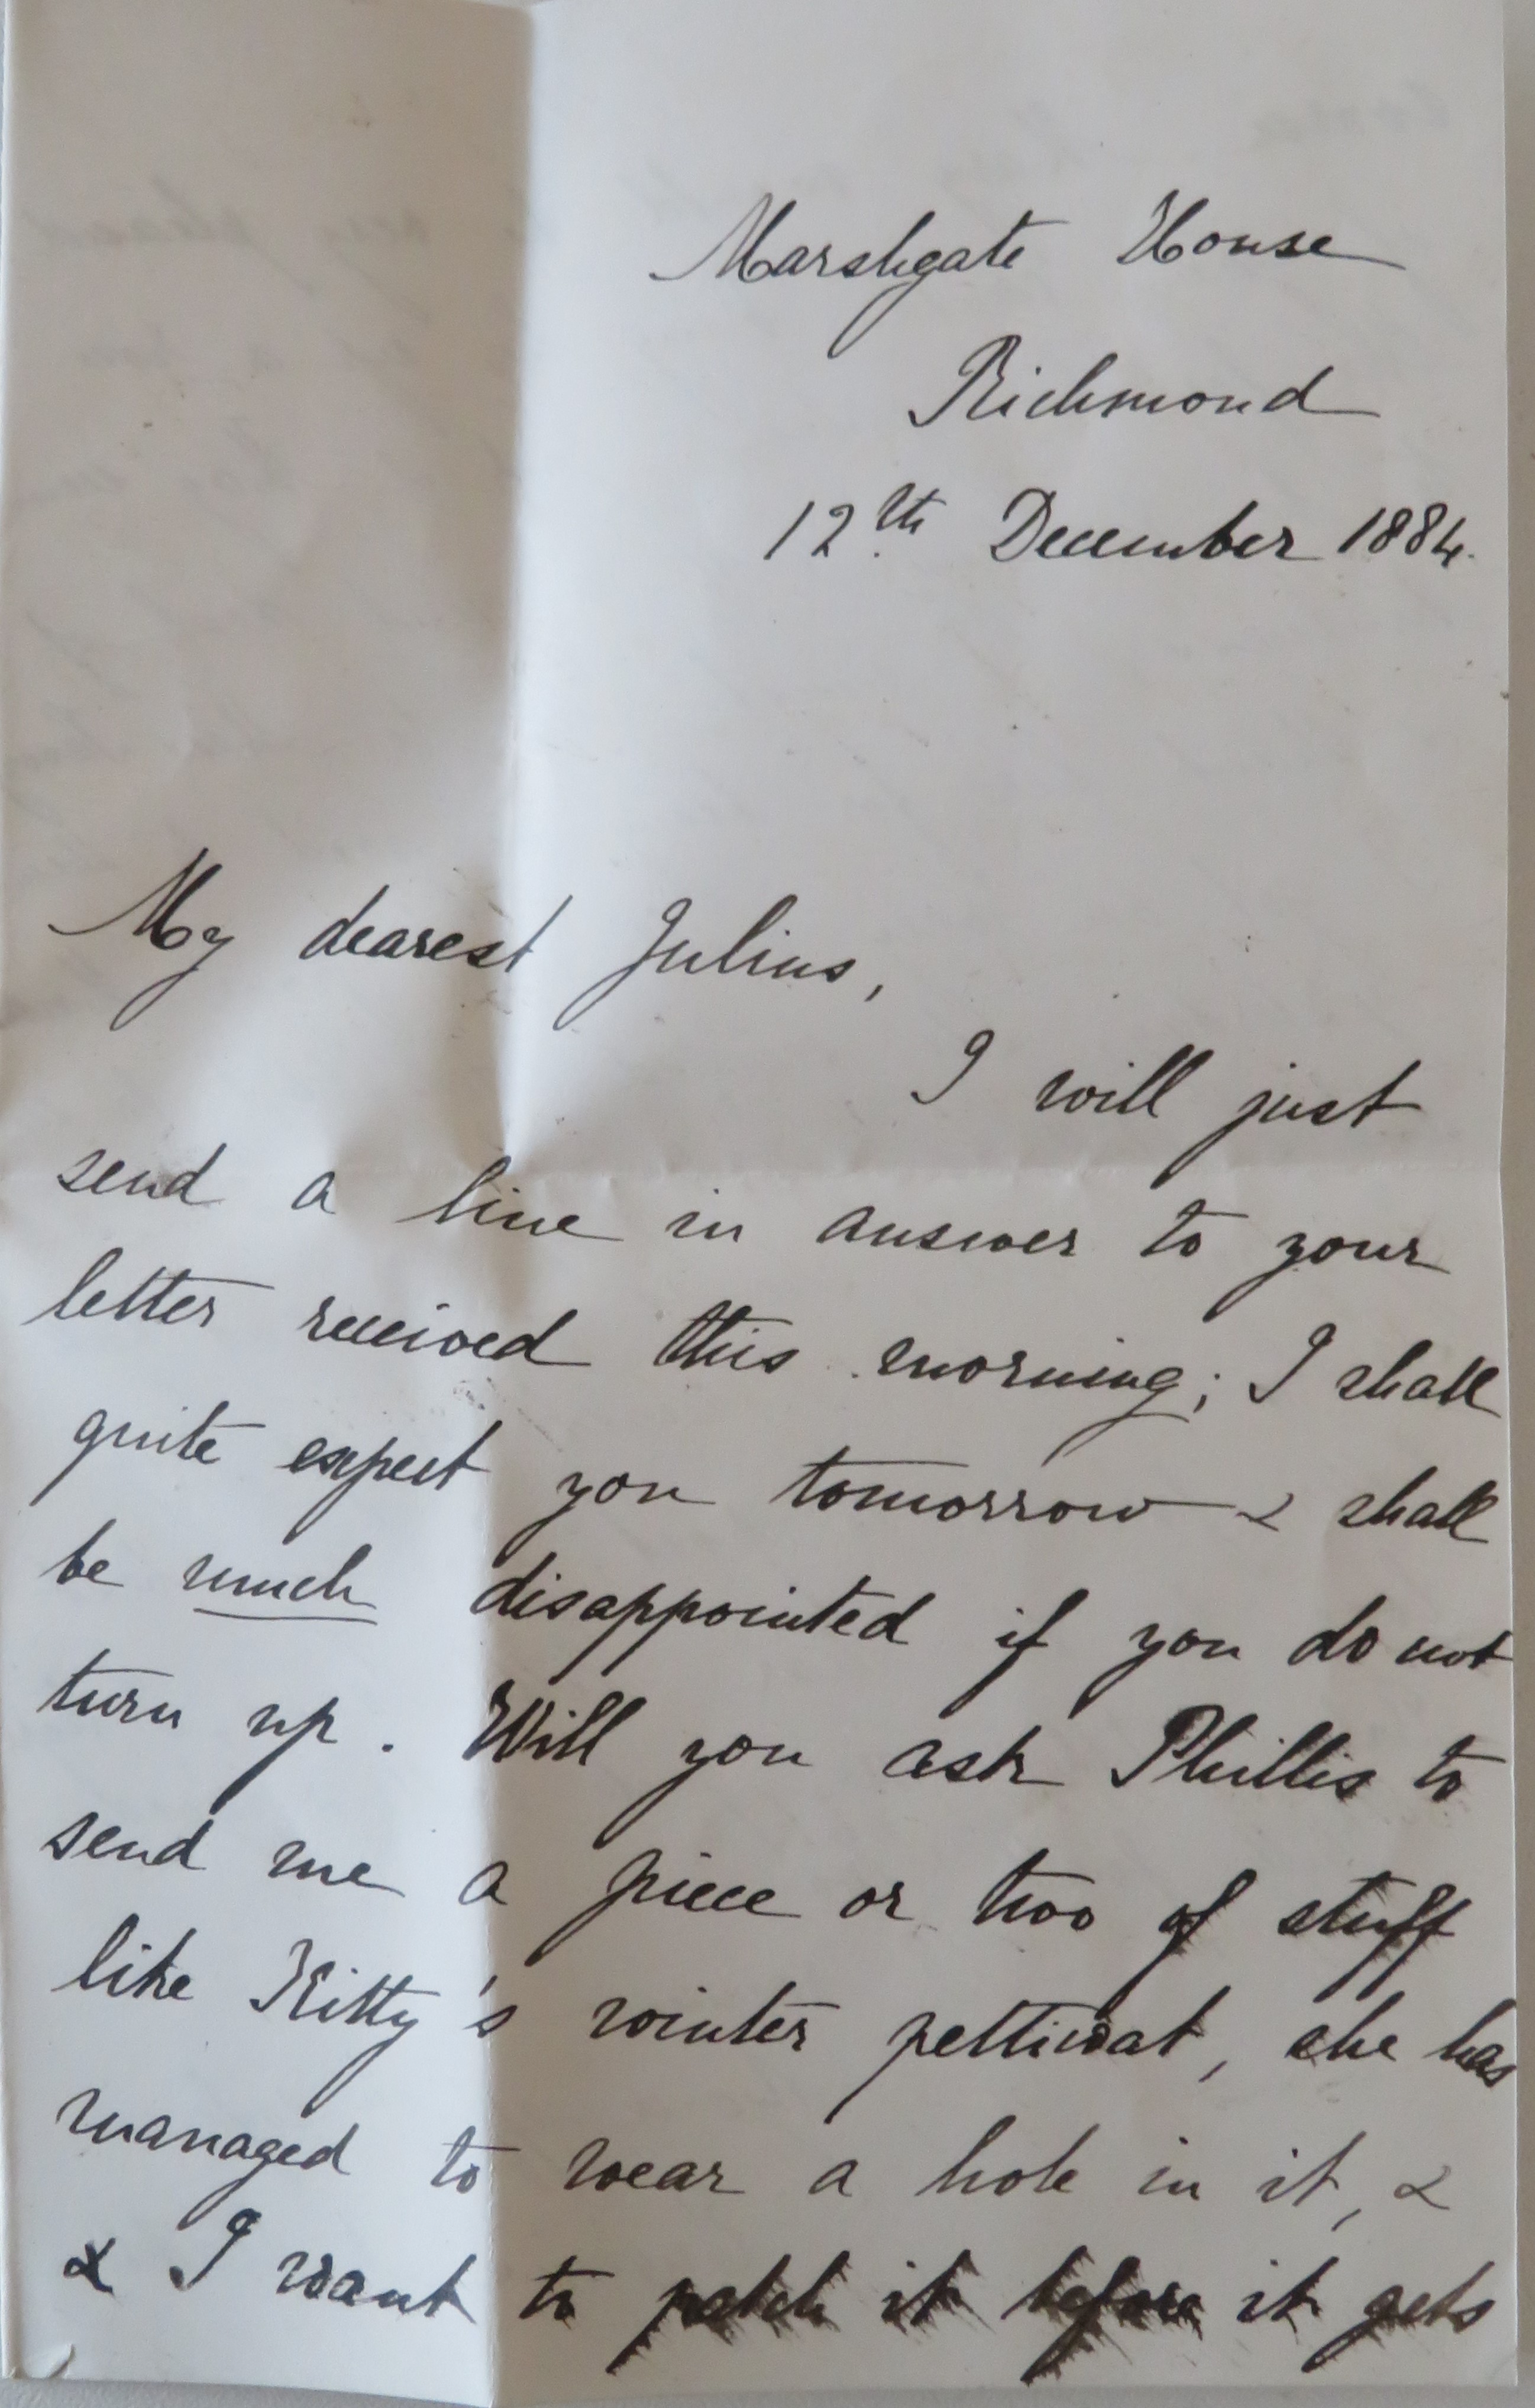 Marshgate House
Richmond
12th December 1884.
My dearest Julius,
I will just
send a line in answer to your
letter received this morning; I shall
quite expect you tomorrow & shall
be much disappointed if you do not
turn up. Will you ask Phillis to
send me a piece or two of stuff
like Kitty's winter petticoat, she has
managed to wear a hole in it, &
& I want to patch it before it gets